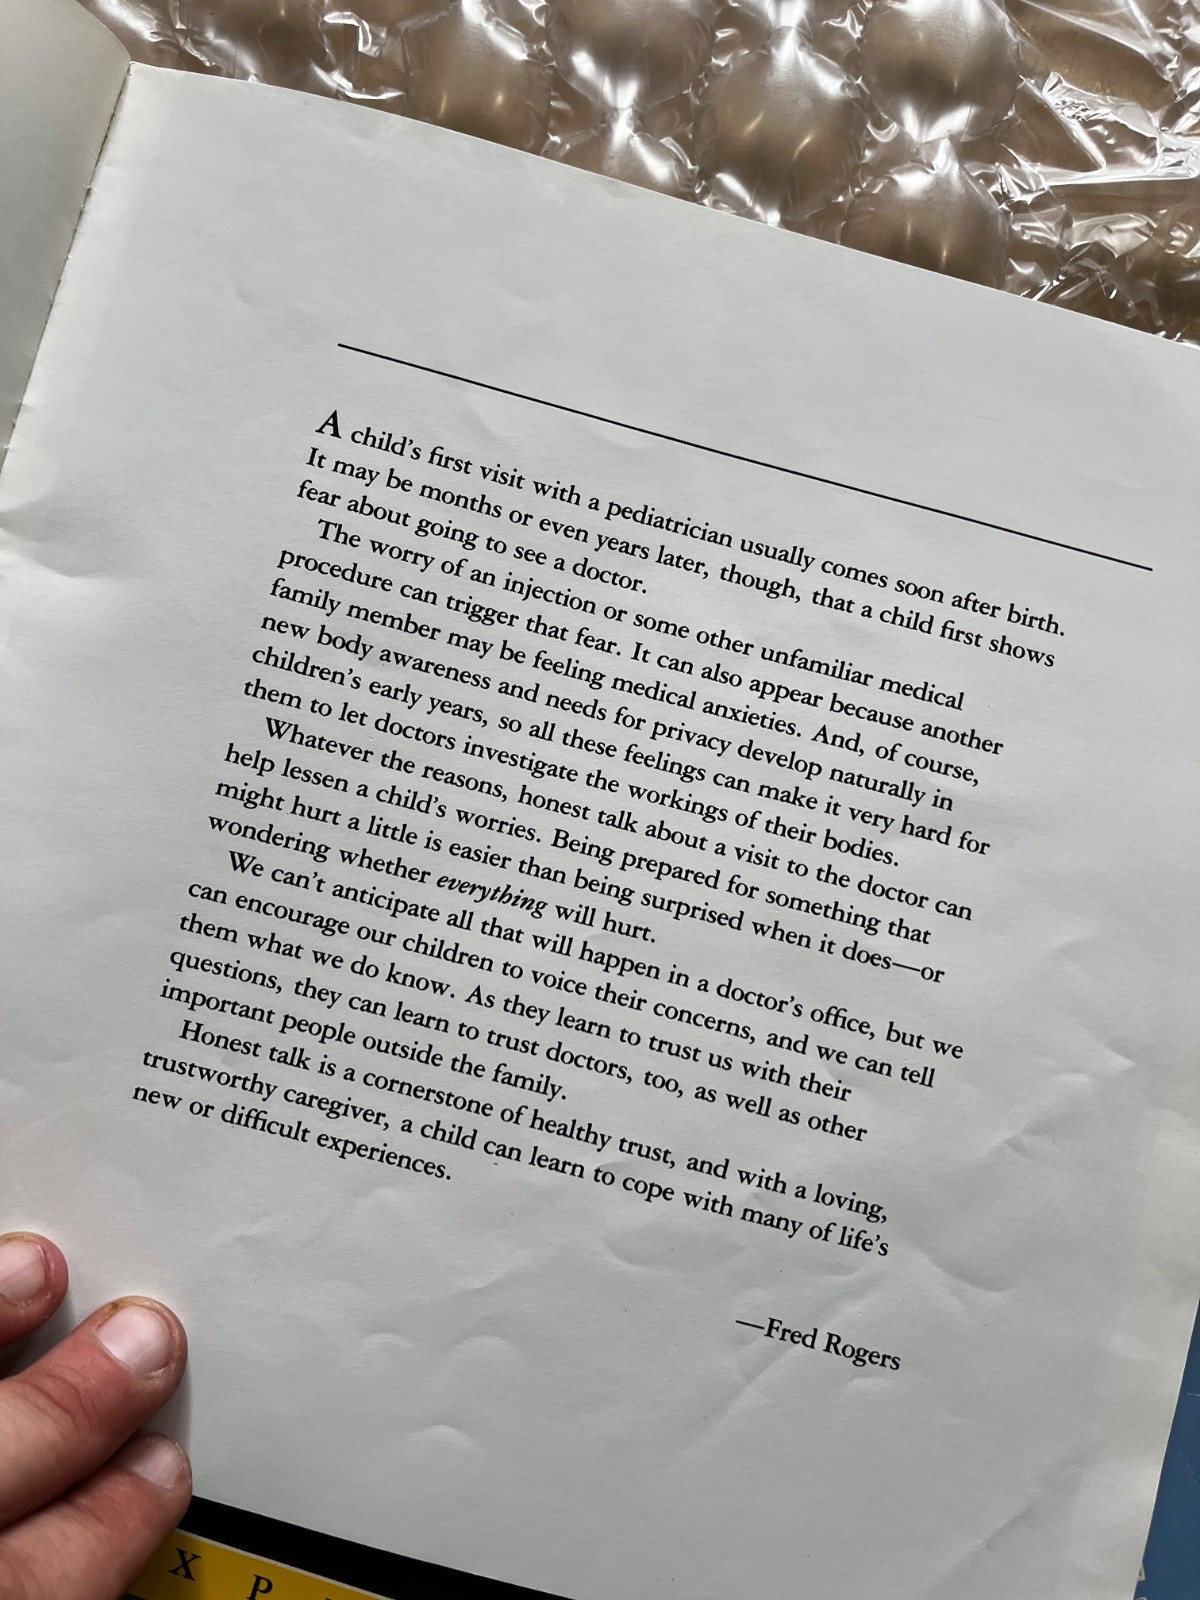 A child's first visit with a pediatrician usually comes soon after birth.
It may be months or even years later, though, that a child first shows
fear about going to see a doctor.
The worry of an injection or some other unfamiliar medical
procedure can trigger that fear. It can also appear because another
family member may be feeling medical anxieties. And, of course,
new body awareness and needs for privacy develop naturally in
children's early years, so all these feelings can make it very hard for
them to let doctors investigate the workings of their bodies.
Whatever the reasons, honest talk about a visit to the doctor can
help lessen a child's worries. Being prepared for something that
might hurt a little is easier than being surprised when it does—or
wondering whether everything will hurt.
We can't anticipate all that will happen in a doctor's office, but we
can encourage our children to voice their concerns, and we can tell
them what we do know. As they learn to trust us with their
questions, they can learn to trust doctors, too, as well as other
important people outside the family.
Honest talk is a cornerstone of healthy trust, and with a loving,
trustworthy caregiver, a child can learn to cope with many of life's
new or difficult experiences.
—Fred Rogers
X P